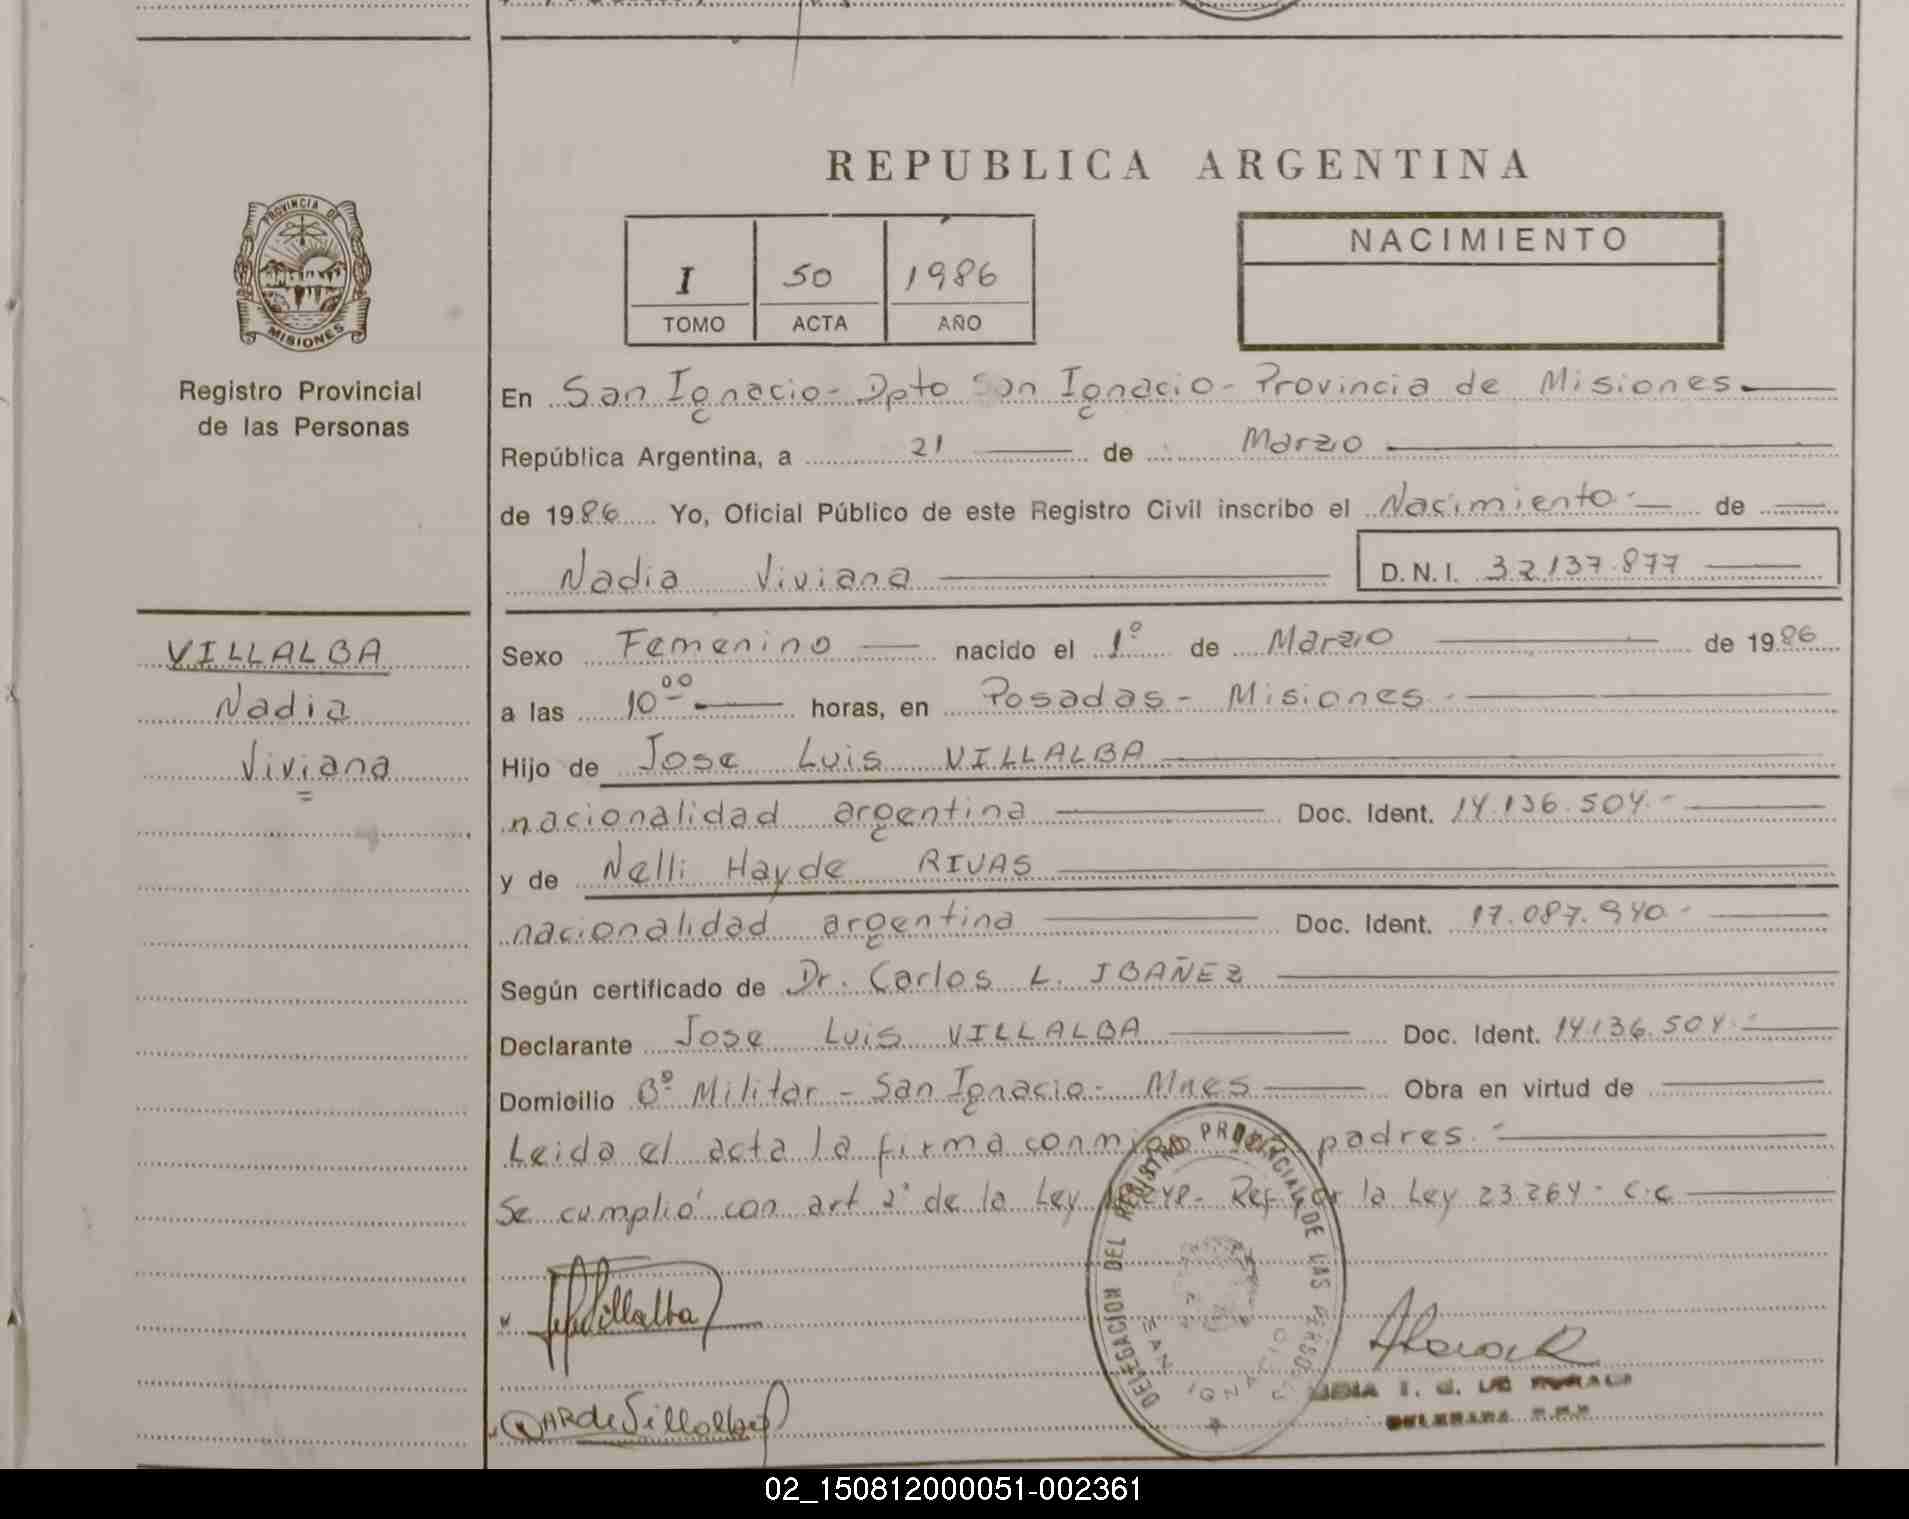 REPUBLICA ARGENTINA
PROVINCIA DE
MISIONES
Registro Provincial
de las Personas
I 50 1986
TOMO ACTA AÑO
NACIMIENTO
En San Ignacio - Dpto San Ignacio - Provincia de Misiones
República Argentina, a 21 de Marzo
de 1986 Yo, Oficial Público de este Registro Civil inscribo el Nacimiento de
Nadia Viviana
D.N.I. 32.137.877
VILLALBA
Nadia
Viviana
Sexo Femenino nacido el 1º de Marzo de 1986
a las 10 00 horas, en Posadas - Misiones
Hijo de Jose Luis VILLALBA
nacionalidad argentina Doc. Ident. 14.136.504.-
y de Nelli Hayde RIVAS
nacionalidad argentina Doc. Ident. 17.087.940.-
Según certificado de Dr. Carlos L. IBAÑEZ
Declarante Jose Luis VILLALBA Doc. Ident. 14.136.504.-
Domicilio Bº Militar - San Ignacio - Mnes Obra en virtud de
Leida el acta la firma conmigo padres.-
Se cumplió con art 2º de la Ley Ref. por la Ley 23.264 - C.C
Villalba
R de Villalba
DELEGACION DEL REGISTRO PROVINCIAL DE LAS PERSONAS
SAN IGNACIO
02_150812000051-002361